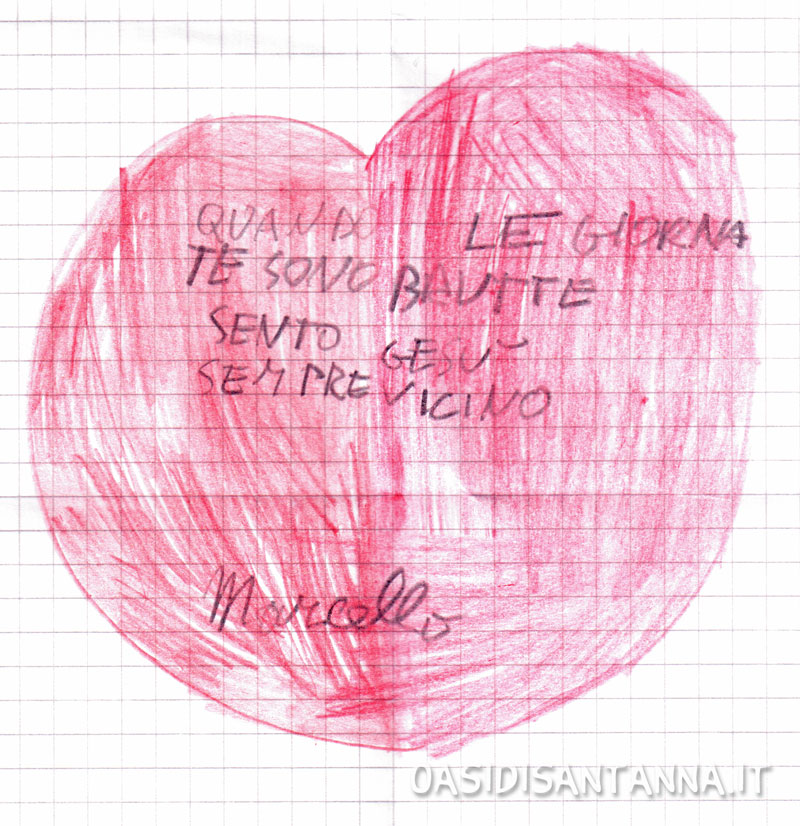 QUANDO LE GIORNA
TE SONO BRUTTE
SENTO GESU'
SEMPRE VICINO
Marcello
OASIDISANTANNA.IT